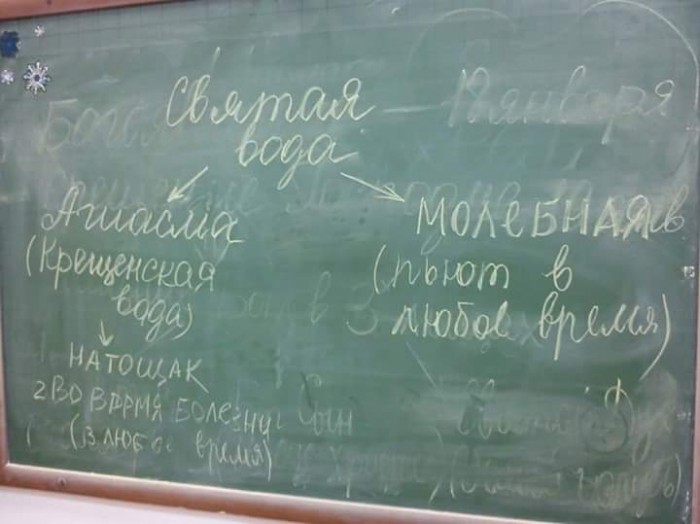 Святая
вода
Агиасма
(Крещенская
вода)
НАТОЩАК
2 ВО ВРЕМЯ БОЛЕЗНИ
(В ЛЮБОЕ время)
МОЛЕБНАЯ
(пьют в
любое время)
января